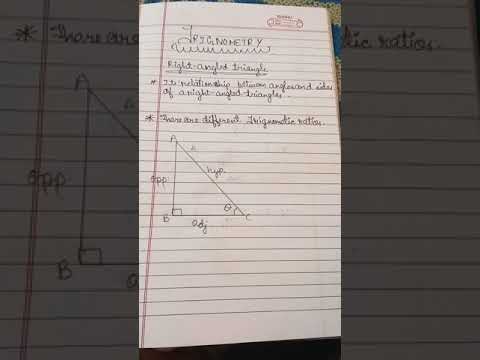 TRIGNOMETRY
Right-angled triangle
* Its relationship between angles and sides
of a right-angled-triangles.
* There are different Trignometic ratios.
A
opp
hyp.
θ
B
C
adj
* There are
tic ratios.
A
opp
B